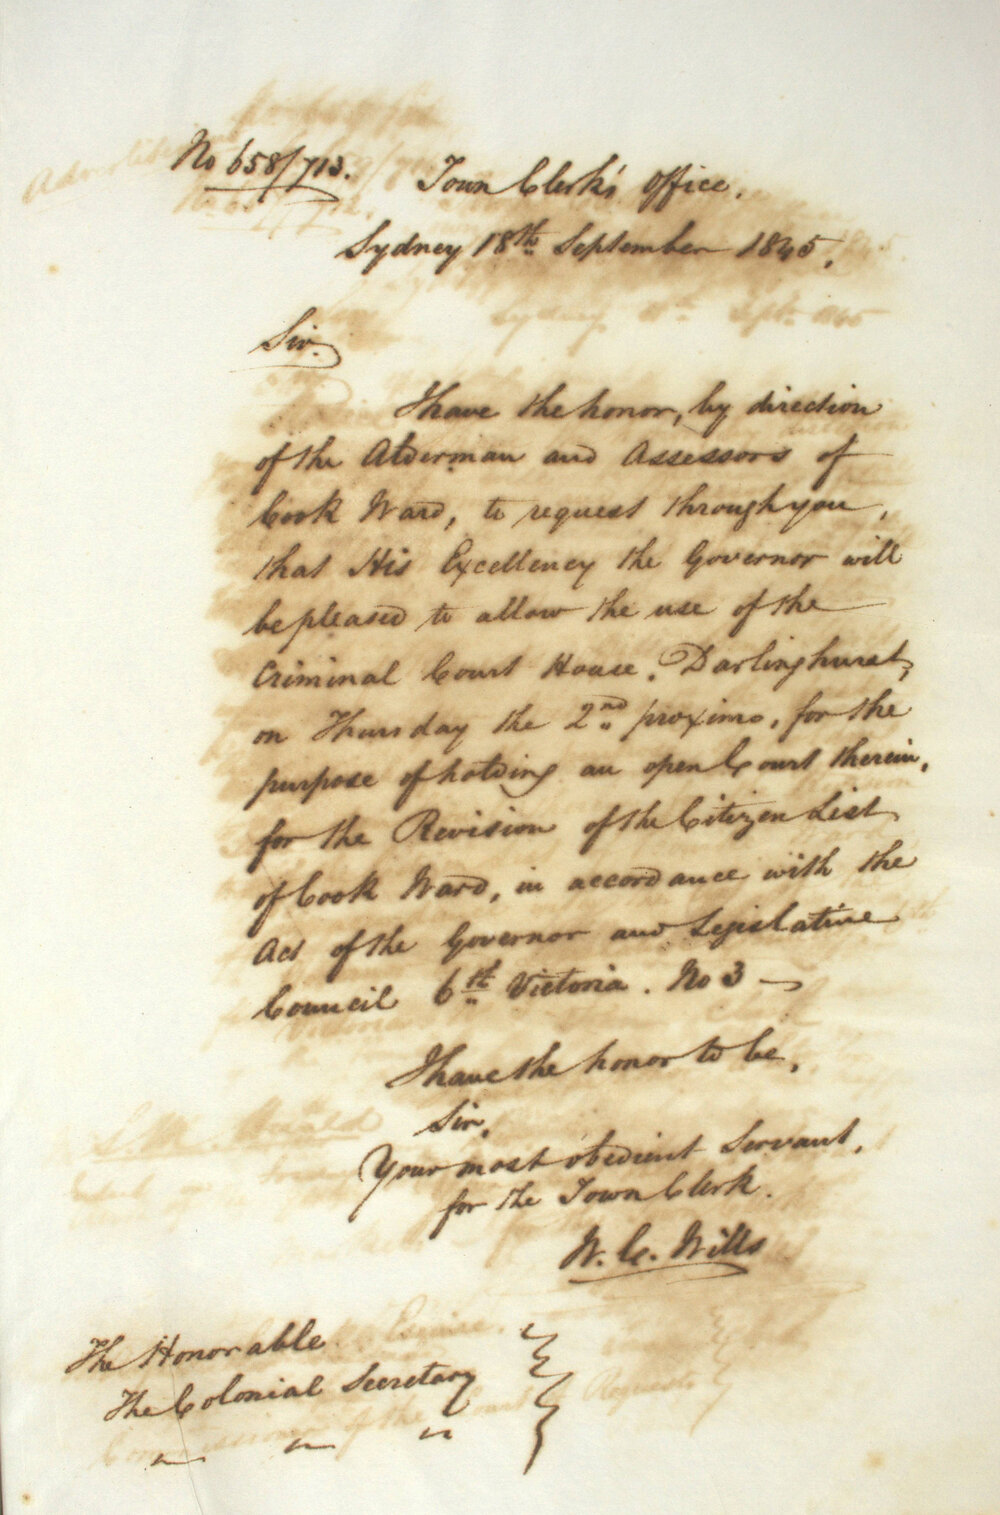 No 658/713.
Town Clerk's Office.
Sydney 18th September 1845.
Sir.
I have the honor, by direction
of the Alderman and Assessors of
Cook Ward, to request through you,
that His Excellency the Governor will
be pleased to allow the use of the
Criminal Court House, Darlinghurst,
on Thursday the 2nd proximo, for the
purpose of holding an open Court therein,
for the Revision of the Citizen List
of Cook Ward, in accordance with the
Act of the Governor and Legislative
Council 6th Victoria. No 3
I have the honor to be,
Sir,
Your most obedient Servant,
for the Town Clerk.
W. C. Wills
The Honorable
The Colonial Secretary
" " "